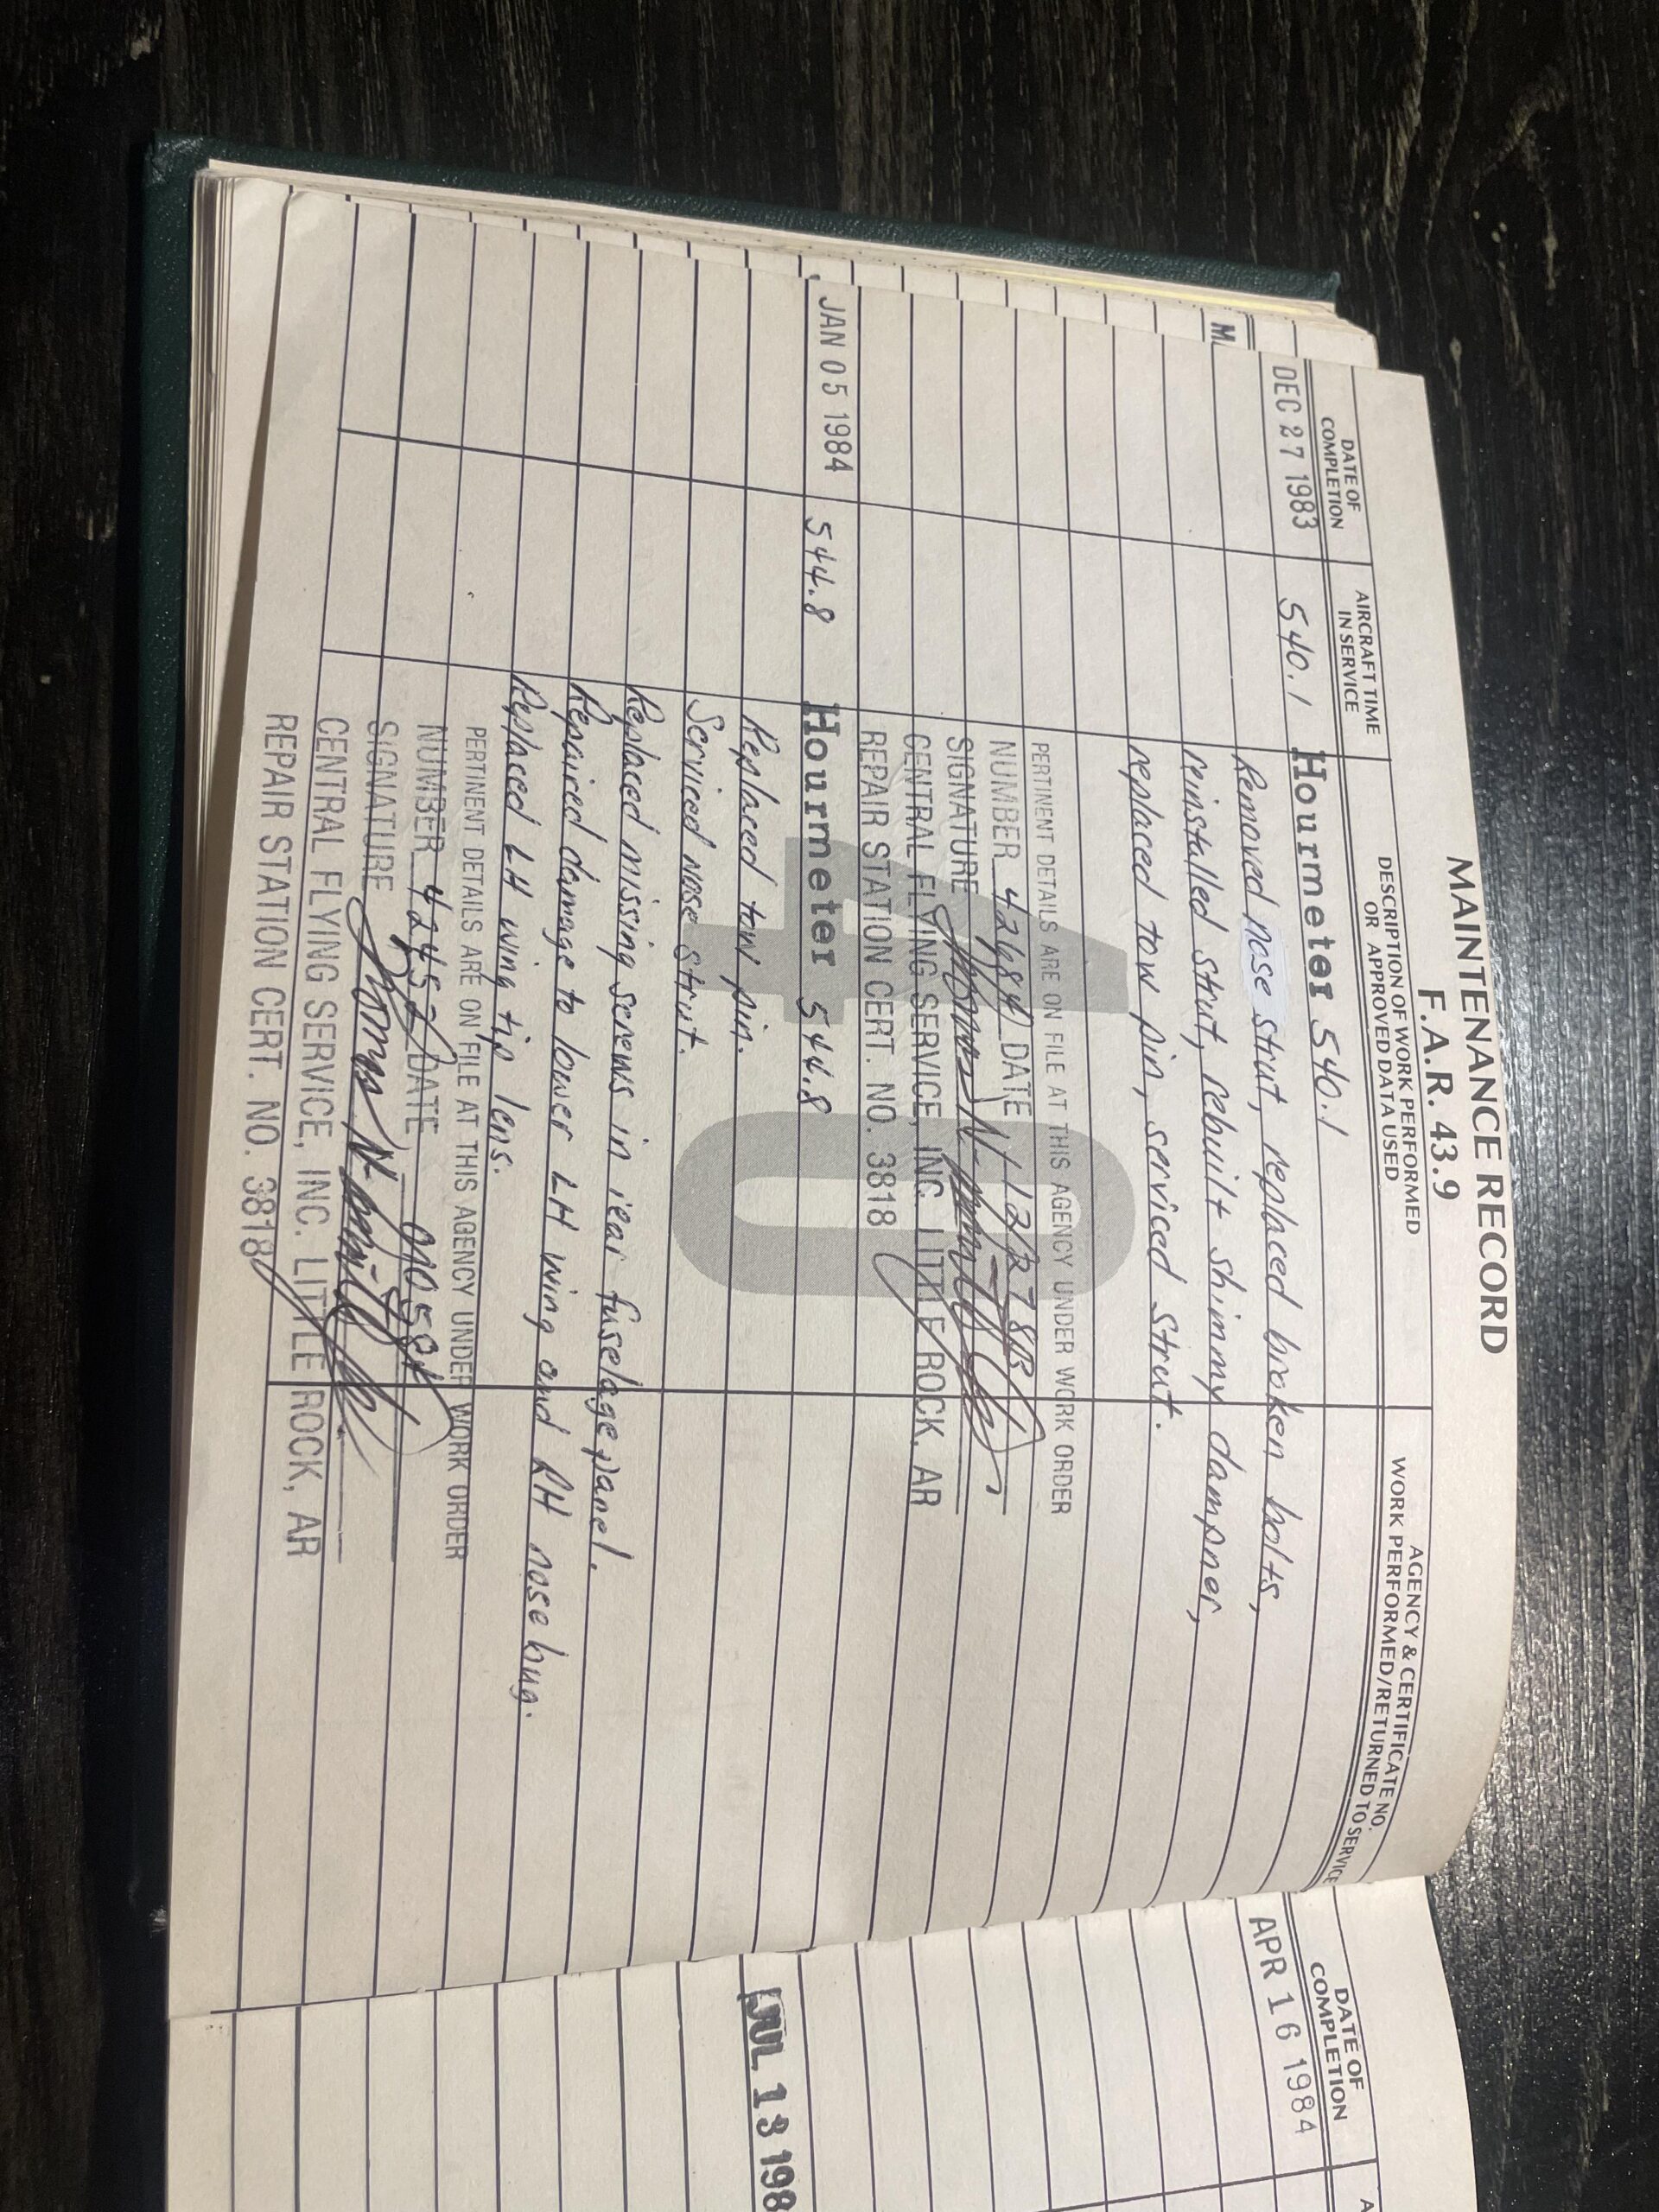 MAINTENANCE RECORD
F.A.R. 43.9
DATE OF COMPLETION
AIRCRAFT TIME IN SERVICE
DESCRIPTION OF WORK PERFORMED OR APPROVED DATA USED
AGENCY & CERTIFICATE NO. WORK PERFORMED/RETURNED TO SERVICE
40
DEC 27 1983 540.1 Hourmeter 540.1
Removed nose strut, replaced broken bolts,
reinstalled strut, rebuilt shimmy dampner,
replaced tow pin, serviced strut.
PERTINENT DETAILS ARE ON FILE AT THIS AGENCY UNDER WORK ORDER
NUMBER DATE 12/27/83
SIGNATURE
CENTRAL FLYING SERVICE, INC. LITTLE ROCK, AR
REPAIR STATION CERT. NO. 3818
JAN 05 1984 544.8 Hourmeter 544.8
Replaced tow pin.
Serviced nose strut.
Replaced missing screws in rear fuselage panel.
Repaired damage to lower LH wing and RH nose bug.
Replaced LH wing tip lens.
PERTINENT DETAILS ARE ON FILE AT THIS AGENCY UNDER WORK ORDER
NUMBER DATE
SIGNATURE
CENTRAL FLYING SERVICE, INC. LITTLE ROCK, AR
REPAIR STATION CERT. NO. 3818
DATE OF COMPLETION
APR 16 1984
JUL 13 198